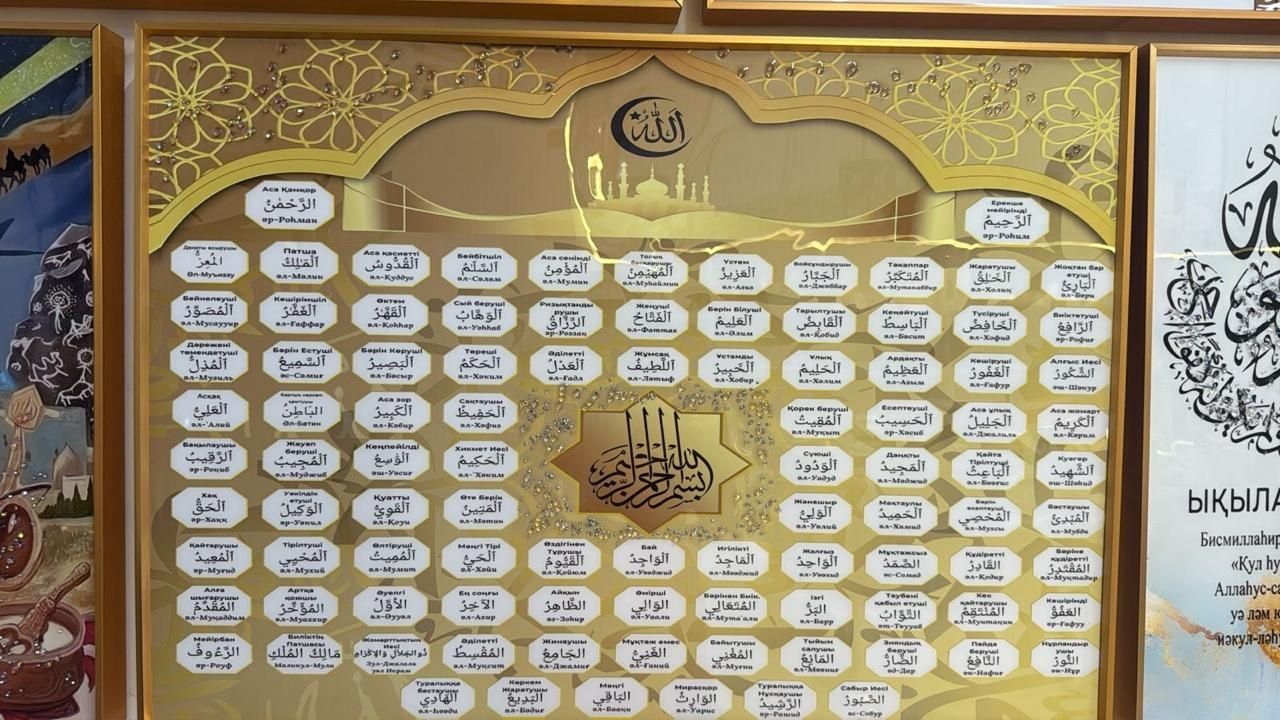 الله
Аса Қамқор
الرَّحْمٰنُ
әр-Роһман
Ерекше
мейірімді
اَلرَّحِيمُ
әр-Роһим
اَلْمُعِزُّ
Әл-Муъиззу
Патша
اَلْمَلِكُ
әл-Мәлик
Аса қасиетті
اَلْقُدُّوسُ
әл-Құддус
Бейбітшіл
اَلسَّلَامُ
әс-Сәләм
Аса сенімді
اَلْمُؤْمِنُ
әл-Мумин
اَلْمُهَيْمِنُ
әл-Муһаймин
Үстем
اَلْعَزِيزُ
әл-Азиз
Бойсұндырушы
اَلْجَبَّارُ
әл-Джәббар
Такаппар
اَلْمُتَكَبِّرُ
әл-Мутакаббир
Жаратушы
اَلْخَالِقُ
әл-Холиқ
Жоқтан бар
етуші
اَلْبَارِئُ
әл-Бәри
Бейнелеуші
اَلْمُصَوِّرُ
әл-Мусаууир
Кешірімшіл
اَلْغَفَّارُ
әл-Ғаффар
Өктем
اَلْقَهَّارُ
әл-Қоһһар
Сый беруші
اَلْوَهَّابُ
әл-Уәһһаб
Ризықтанды
рушы
اَلرَّزَّاقُ
әр-Роззақ
Жеңуші
اَلْفَتَّاحُ
әл-Фаттах
Бәрін Білуші
اَلْعَلِيمُ
әл-Әлим
Тарылтушы
اَلْقَابِضُ
әл-Қобид
Кеңейтуші
اَلْبَاسِطُ
әл-Бәсит
Түсіруші
اَلْخَافِضُ
әл-Хофид
Биіктетуші
اَلرَّافِعُ
әр-Рофиғ
Дәрежені
төмендетуші
اَلْمُذِلُّ
әл-Музиль
Бәрін Естуші
اَلسَّمِيعُ
әс-Сәмиғ
Бәрін Көруші
اَلْبَصِيرُ
әл-Басыр
Төреші
اَلْحَكَمُ
әл-Хәким
Әділетті
اَلْعَدْلُ
әл-Ғадл
Жұмсақ
اَللَّطِيفُ
әл-Ләтыф
Ұстамды
اَلْخَبِيرُ
әл-Хобир
Ұлық
اَلْحَلِيمُ
әл-Хәлим
Ардақты
اَلْعَظِيمُ
әл-Азым
Кешіруші
اَلْغَفُورُ
әл-Ғафур
Алғыс Иесі
اَلشَّكُورُ
әш-Шәкур
Асқақ
اَلْعَلِيُّ
әл-Алий
اَلْبَاطِنُ
Әл-Батин
Аса зор
اَلْكَبِيرُ
әл-Кәбир
Сақтаушы
اَلْحَفِيظُ
әл-Хафиз
Қорек беруші
اَلْمُقِيتُ
әл-Муқыт
Есептеуші
اَلْحَسِيبُ
әр-Хәсиб
Аса ұлық
اَلْجَلِيلُ
әл-Джәлиль
Аса жомарт
اَلْكَرِيمُ
әл-Кәрим
بسم الله الرحمن الرحيم
Бақылаушы
اَلرَّقِيبُ
әр-Роқиб
Жауап
беруші
اَلْمُجِيبُ
әл-Муджиб
Кеңпейілді
اَلْوَاسِعُ
әш-Уәсиғ
Хикмет Иесі
اَلْحَكِيمُ
әл-Хәким
Сүюші
اَلْوَدُودُ
әл-Уадуд
Даңқты
اَلْمَجِيدُ
әл-Мәджид
Қайта
Тірілтуші
اَلْبَاعِثُ
әл-Бәғис
Куәгер
اَلشَّهِيدُ
әш-Шәһид
Хақ
اَلْحَقُّ
әр-Хаққ
Уәкілдік
етуші
اَلْوَكِيلُ
әр-Уәкил
Қуатты
اَلْقَوِيُّ
әл-Қоуи
Өте Берік
اَلْمَتِينُ
әл-Мәтин
Жанашыр
اَلْوَلِيُّ
әл-Уәлий
Мақтаулы
اَلْحَمِيدُ
әл-Хәмид
Бәрін
есептеуші
اَلْمُحْصِي
әл-Мухсы
Бастаушы
اَلْمُبْدِئُ
әл-Мубди
Қайтарушы
اَلْمُعِيدُ
әр-Муғид
Тірілтуші
اَلْمُحْيِي
әл-Мухий
Өлтіруші
اَلْمُمِيتُ
әл-Мумит
Мәңгі Тірі
اَلْحَيُّ
әл-Хәйи
Өздігінен
Тұрушы
اَلْقَيُّومُ
әл-Қойюм
Бай
اَلْوَاجِدُ
әл-Уәәджид
Игілікті
اَلْمَاجِدُ
әл-Мәәджид
Жалғыз
اَلْوَاحِدُ
әл-Уәәхид
Мұқтажсыз
اَلصَّمَدُ
әс-Сомад
Құдіретті
اَلْقَادِرُ
әл-Қодир
Бәріне
құдіретті
اَلْمُقْتَدِرُ
әл-Муқтадир
Алға
шығарушы
اَلْمُقَدِّمُ
әл-Муқаддим
Артқа
қоюшы
اَلْمُؤَخِّرُ
әл-Муаххир
Әуелгі
اَلْأَوَّلُ
әл-Әууәл
Ең соңғы
اَلْآخِرُ
әл-Ахир
Айқын
اَلظَّاهِرُ
әз-Зоһир
Әмірші
اَلْوَالِي
әл-Уәли
Бәрінен Биік
اَلْمُتَعَالِي
әл-Мутаъали
Ізгі
اَلْبَرُّ
әл-Барр
Тәубені
қабыл етуші
اَلتَّوَّابُ
әт-Тәууаб
Кек
қайтарушы
اَلْمُنْتَقِمُ
әл-Мунтақим
Кешірімді
اَلْعَفُوُّ
әр-Ғафуу
Мейірбан
اَلرَّءُوفُ
әр-Роуф
Биліктің
Патшасы
مَالِكُ الْمُلْكِ
Маликул-Мулк
Жомарттықтың
Иесі
ذُو الْجَلَالِ وَالْإِكْرَامِ
Зул-Джәләли
уәл Икрам
Әділетті
اَلْمُقْسِطُ
әл-Муқсит
Жинаушы
اَلْجَامِعُ
әл-Джамиғ
Мұқтаж емес
اَلْغَنِيُّ
әл-Ғаний
Байытушы
اَلْمُغْنِي
әл-Муғни
Тыйым
салушы
اَلْمَانِعُ
әл-Мәәниғ
Зияндық
беруші
اَلضَّارُّ
әд-Дар
Пайда
беруші
اَلنَّافِعُ
әл-Нәфиғ
Нұрландыр
ушы
اَلنُّورُ
ән-Нұр
Туралыққа
бастаушы
اَلْهَادِي
әл-Һәәди
Көркем
Жаратушы
اَلْبَدِيعُ
әл-Бәдиғ
Мәңгі
اَلْبَاقِي
әл-Баақи
Мирасқор
اَلْوَارِثُ
әл-Уарис
Туралықты
Нұсқаушы
اَلرَّشِيدُ
әр-Рашид
Сабыр Иесі
اَلصَّبُورُ
әс-Собур
ЫҚЫЛА
Бисмилләһир
«Қул һу
Аллаһус-са
уә ләм к